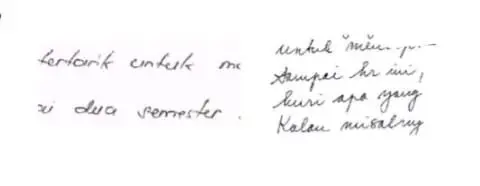 tertarik untuk
dua semester.
untuk
Sampai hr ini,
kuri apa yang
Kalau misalny